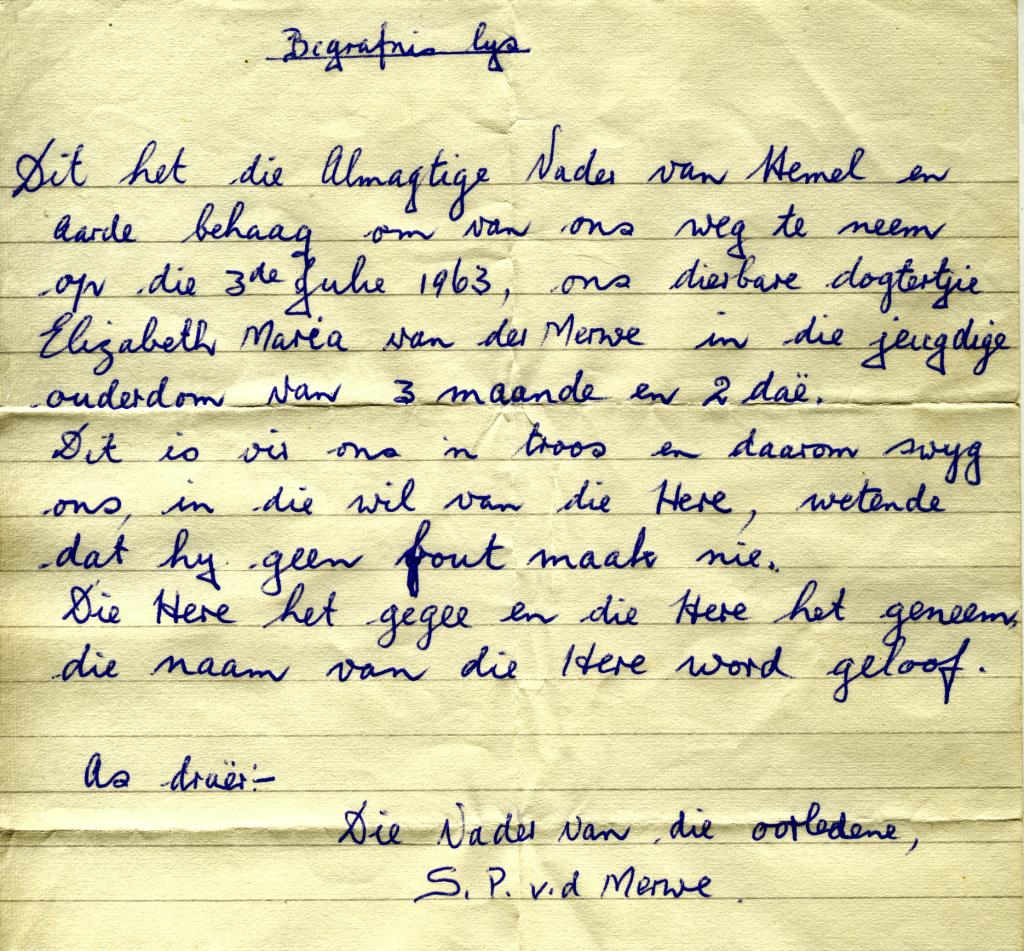 Begrafnis lys
Dit het die Almagtige Vader van Hemel en
aarde behaag om van ons weg te neem
op die 3de Julie 1963, ons dierbare dogtertjie
Elizabeth Maria van der Merwe in die jeugdige
ouderdom van 3 maande en 2 daë.
Dit is vir ons 'n troos en daarom swyg
ons, in die wil van die Here, wetende
dat hy geen fout maak nie.
Die Here het gegee en die Here het geneem,
die naam van die Here word geloof.
As draër:-
Die Vader van die oorledene,
S. P. v.d Merwe.